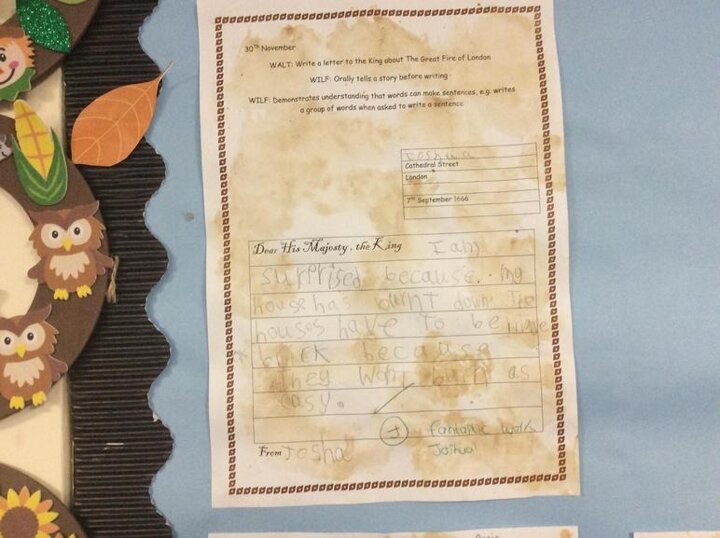 30TH November
WALT: Write a letter to the King about The Great Fire of London
WILF: Orally tells a story before writing
WILF: Demonstrates understanding that words can make sentences, e.g. writes
a group of words when asked to write a sentence
Joshua
Cathedral Street
London
7th September 1666
Dear His Majesty, the King I am
surprised because. my
house has burnt down The
houses have to be
brick because
they wont burn as
easy.
fantastic work
Joshua!
From Joshua